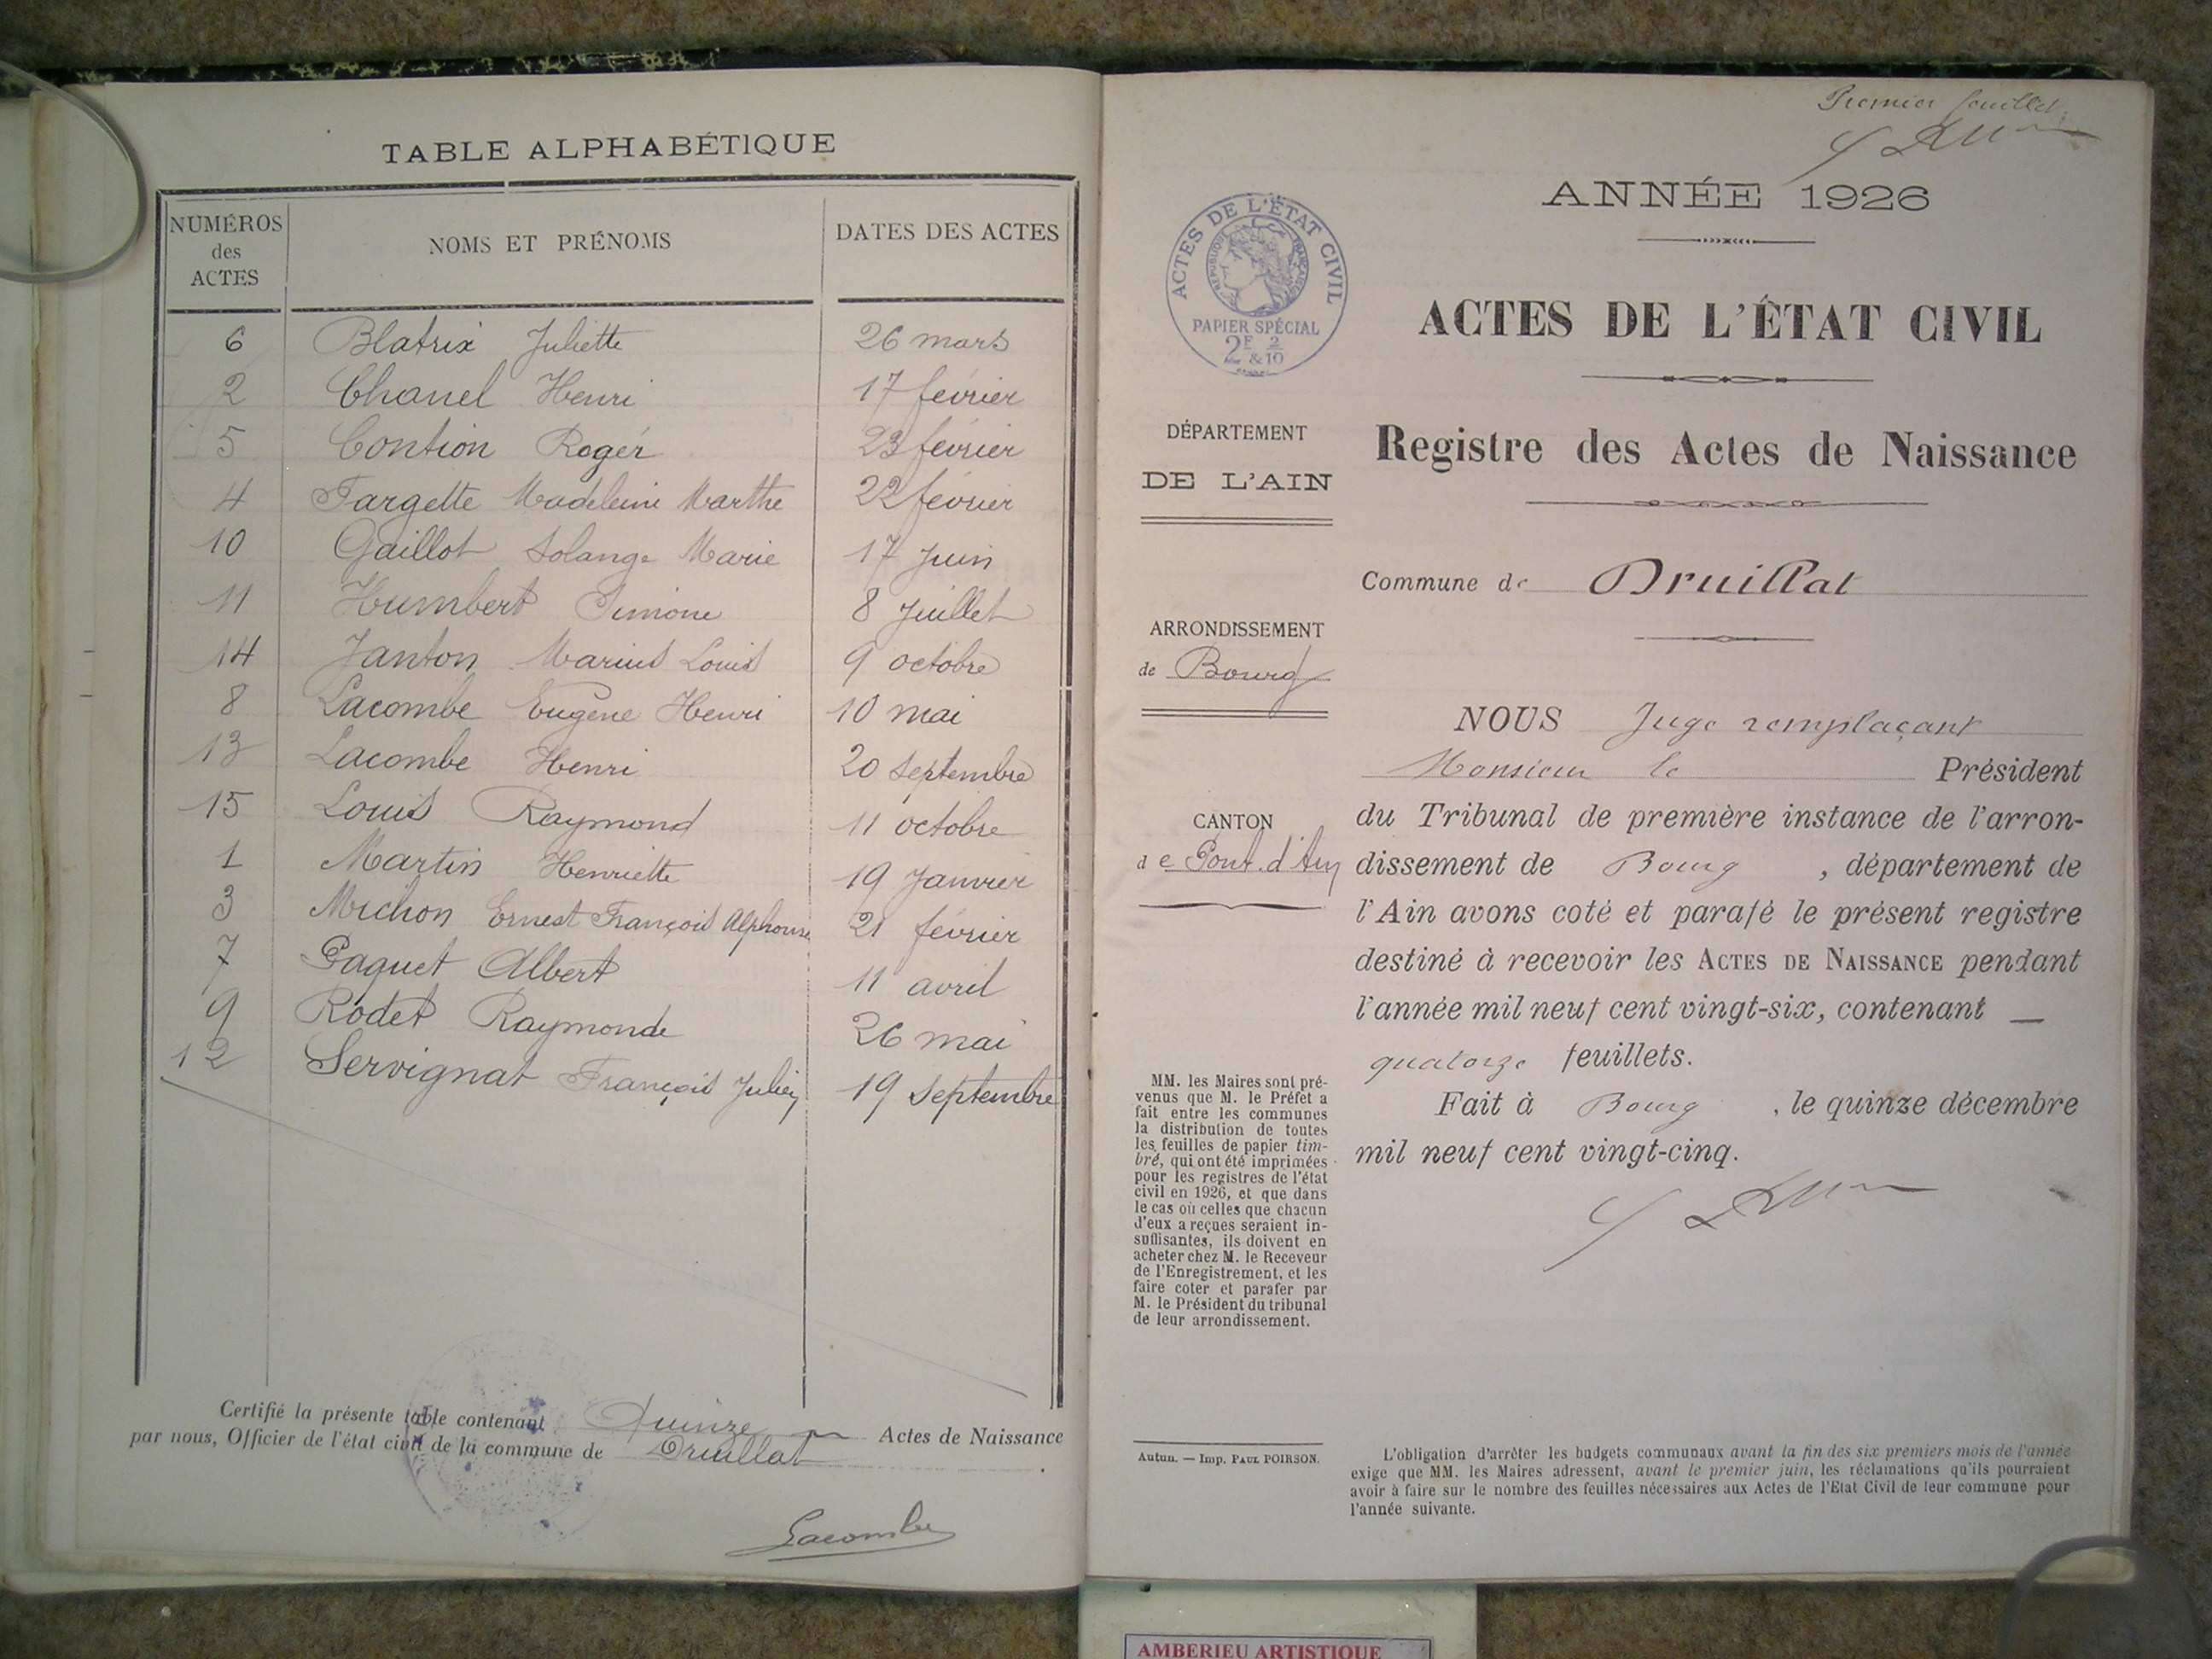 TABLE ALPHABÉTIQUE
NUMÉROS des ACTES NOMS ET PRÉNOMS DATES DES ACTES
6 Blatrix Juliette 26 mars
2 Chanel Henri 17 février
5 Contion Roger 23 février
4 Fargette Madeleine Marthe 22 février
10 Gaillot Solange Marie 17 Juin
11 Humbert Simone 8 Juillet
14 Janton Marius Louis 9 octobre
8 Lacombe Eugène Henri 10 mai
13 Lacombe Henri 20 septembre
15 Louis Raymond 11 octobre
1 Martin Henriette 19 Janvier
3 Michon Ernest François Alphonse 21 février
7 Paquet Albert 11 avril
9 Rodet Raymonde 26 mai
12 Servignat François Julien 19 septembre
Certifié la présente table contenant Quinze Actes de Naissance
par nous, Officier de l'état civil de la commune de Druillat
Lacombe
Premier feuillet
ANNÉE 1926
ACTES DE L'ÉTAT CIVIL
RÉPUBLIQUE FRANÇAISE
PAPIER SPÉCIAL
2F 2
&10
ACTES DE L'ÉTAT CIVIL
Registre des Actes de Naissance
DÉPARTEMENT
DE L'AIN
Commune de Druillat
ARRONDISSEMENT
de Bourg
CANTON
de Pont d'Ain
NOUS Juge remplaçant
Monsieur le Président
du Tribunal de première instance de l'arron-
dissement de Bourg , département de
l'Ain avons coté et parafé le présent registre
destiné à recevoir les ACTES DE NAISSANCE pendant
l'année mil neuf cent vingt-six, contenant —
quatorze feuillets.
Fait à Bourg , le quinze décembre
mil neuf cent vingt-cinq.
MM. les Maires sont pré-
venus que M. le Préfet a
fait entre les communes
la distribution de toutes
les feuilles de papier tim-
bré, qui ont été imprimées
pour les registres de l'état
civil en 1926, et que dans
le cas où celles que chacun
d'eux a reçues seraient in-
suffisantes, ils doivent en
acheter chez M. le Receveur
de l'Enregistrement, et les
faire coter et parafer par
M. le Président du tribunal
de leur arrondissement.
Autun. — Imp. PAUL POIRSON.
L'obligation d'arrêter les budgets communaux avant la fin des six premiers mois de l'année
exige que MM. les Maires adressent, avant le premier juin, les réclamations qu'ils pourraient
avoir à faire sur le nombre des feuilles nécessaires aux Actes de l'Etat Civil de leur commune pour
l'année suivante.
AMBERIEU ARTISTIQUE